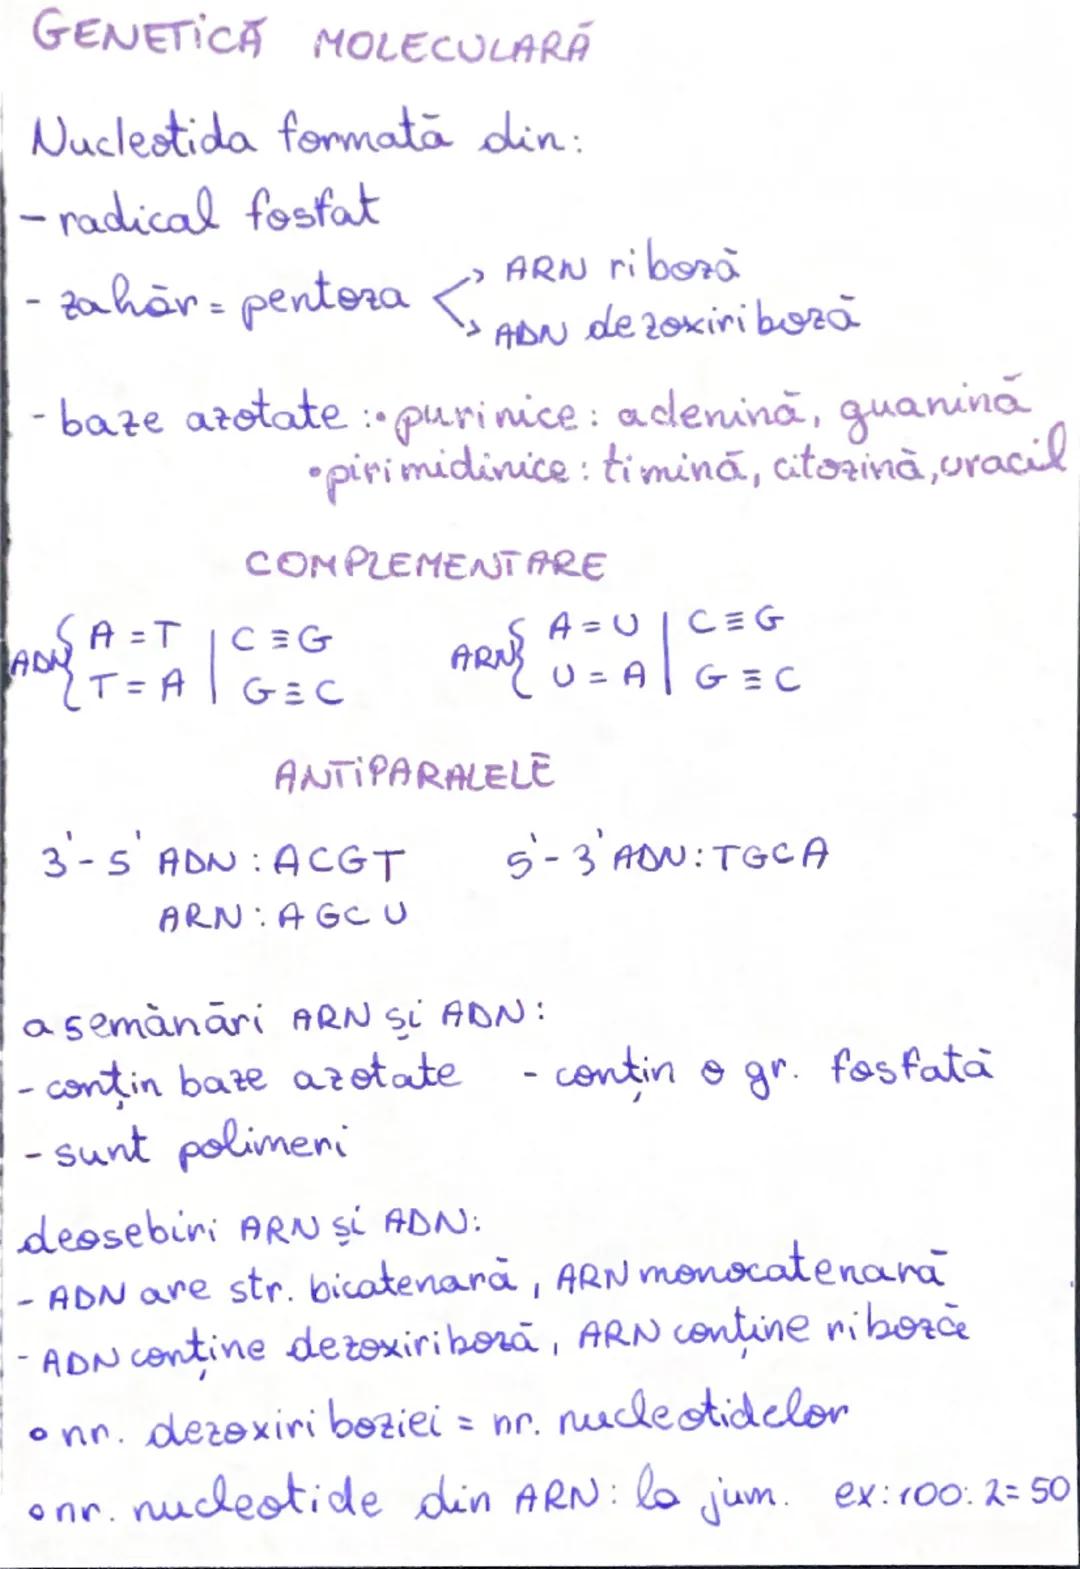 GENETICĂ MOLECULARĂ
Nucleotida formată din:
- radical fosfat
- zahăr = pentoza < ARN riboză
ADN dezoxiriboză
- baze azotate : • purinice : adenină, guanină
• pirimidinice : timină, citozină, uracil
COMPLEMENTARE
ADN { A = T | C ≡ G
T = A | G ≡ C
ARN { A = U | C ≡ G
U = A | G ≡ C
ANTIPARALELE
3'-5' ADN : ACGT 5'-3' ADN : TGCA
ARN : AGCU
asemănări ARN și ADN :
- conțin baze azotate - conțin o gr. fosfată
- sunt polimeri
deosebiri ARN și ADN :
- ADN are str. bicatenară, ARN monocatenară
- ADN conține dezoxiriboză, ARN conține riboză
• nr. dezoxiriboziei = nr. nucleotidelor
• nr. nucleotide din ARN : la jum. ex : 100 : 2 = 50